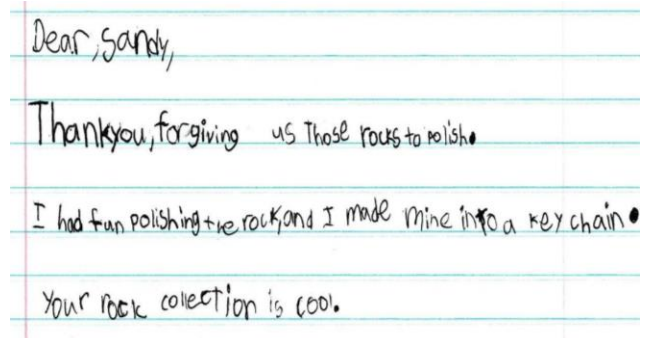 Dear, Sandy,
Thankyou, forgiving us Those rocks to polish.
I had fun polishing the rock, and I made mine into a key chain.
Your rock collection is cool.